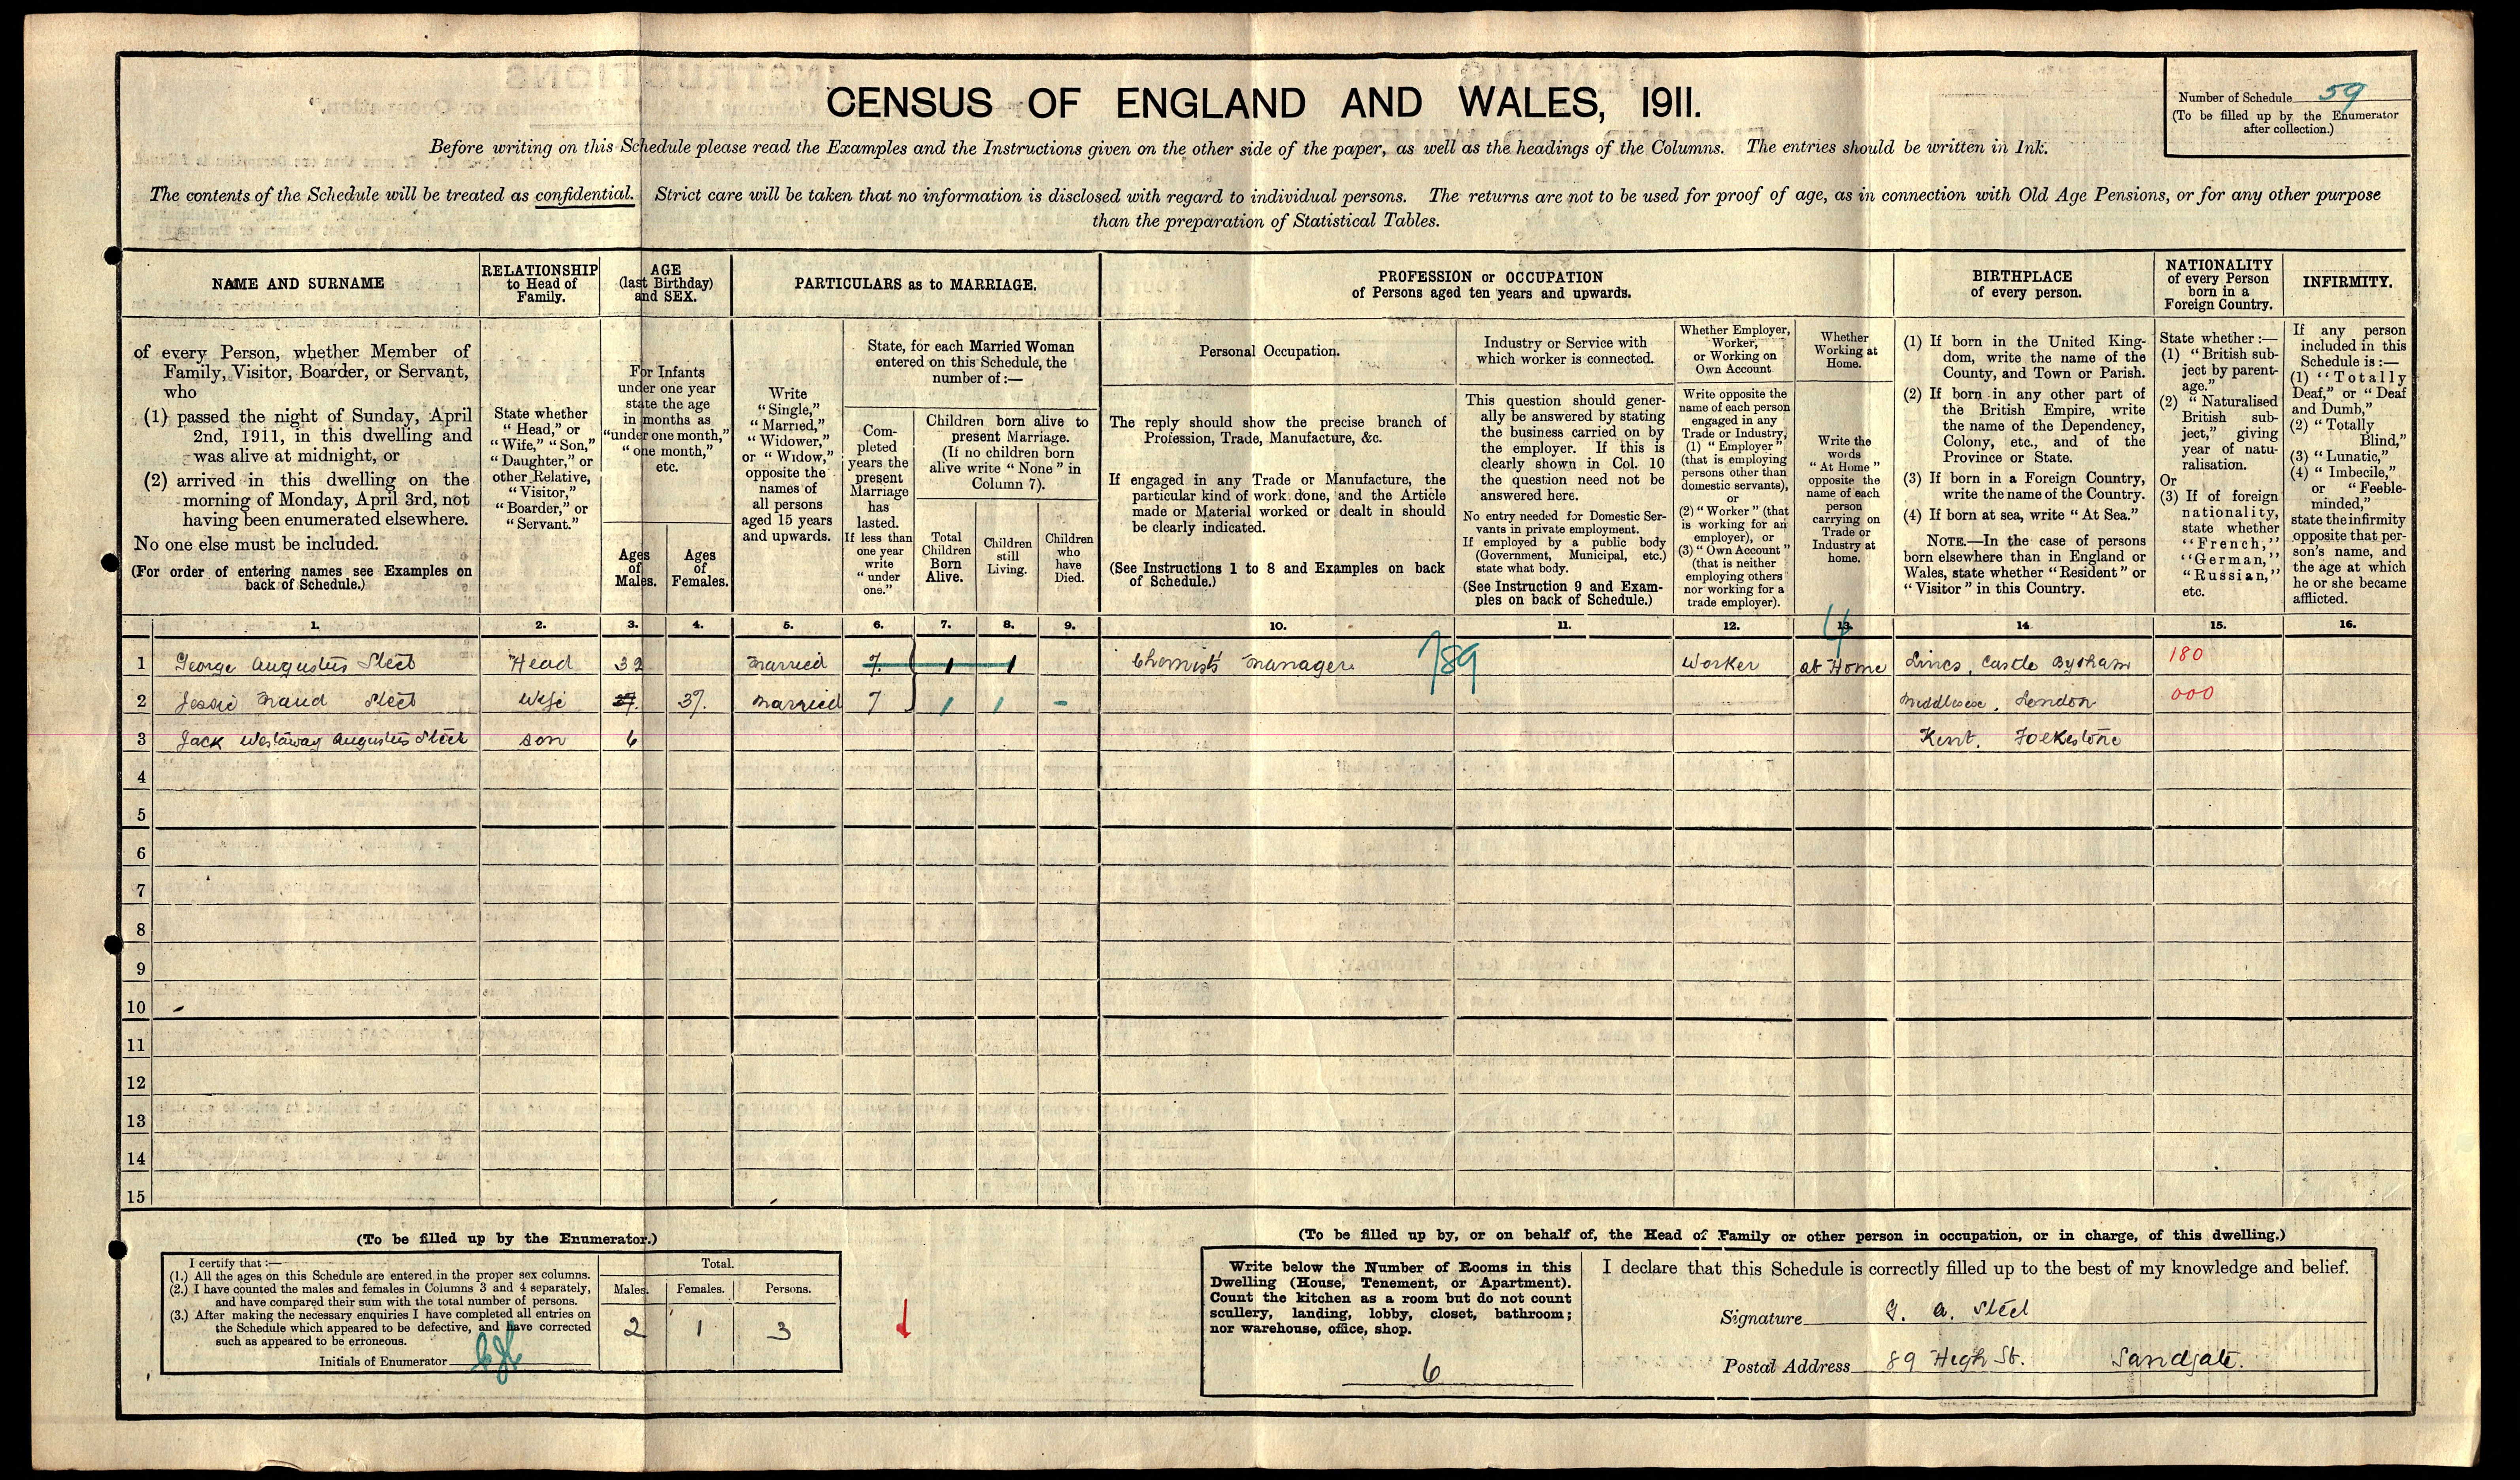 CENSUS OF ENGLAND AND WALES, 1911.
Number of Schedule 59
(To be filled up by the Enumerator
after collection.)
Before writing on this Schedule please read the Examples and the Instructions given on the other side of the paper, as well as the headings of the Columns. The entries should be written in Ink.
The contents of the Schedule will be treated as confidential. Strict care will be taken that no information is disclosed with regard to individual persons. The returns are not to be used for proof of age, as in connection with Old Age Pensions, or for any other purpose
than the preparation of Statistical Tables.
NAME AND SURNAME
of every Person, whether Member of
Family, Visitor, Boarder, or Servant,
who
(1) passed the night of Sunday, April
2nd, 1911, in this dwelling and
was alive at midnight, or
(2) arrived in this dwelling on the
morning of Monday, April 3rd, not
having been enumerated elsewhere.
No one else must be included.
(For order of entering names see Examples on
back of Schedule.)
RELATIONSHIP
to Head of
Family.
State whether
"Head," or
"Wife," "Son,"
"Daughter," or
other Relative,
"Visitor,"
"Boarder," or
"Servant."
AGE
(last Birthday)
and SEX.
For Infants
under one year
state the age
in months as
"under one month,"
"one month,"
etc.
Ages
of
Males.
Ages
of
Females.
PARTICULARS as to MARRIAGE.
Write
"Single,"
"Married,"
"Widower,"
or "Widow,"
opposite the
names of
all persons
aged 15 years
and upwards.
State, for each Married Woman
entered on this Schedule, the
number of:—
Com-
pleted
years the
present
Marriage
has
lasted.
If less than
one year
write
"under
one."
Children born alive to
present Marriage.
(If no children born
alive write "None" in
Column 7).
Total
Children
Born
Alive.
Children
still
Living.
Children
who
have
Died.
PROFESSION or OCCUPATION
of Persons aged ten years and upwards.
Personal Occupation.
The reply should show the precise branch of
Profession, Trade, Manufacture, &c.
If engaged in any Trade or Manufacture, the
particular kind of work done, and the Article
made or Material worked or dealt in should
be clearly indicated.
(See Instructions 1 to 8 and Examples on back
of Schedule.)
Industry or Service with
which worker is connected.
This question should gener-
ally be answered by stating
the business carried on by
the employer. If this is
clearly shown in Col. 10
the question need not be
answered here.
No entry needed for Domestic Ser-
vants in private employment.
If employed by a public body
(Government, Municipal, etc.)
state what body.
(See Instruction 9 and Exam-
ples on back of Schedule.)
Whether Employer,
Worker,
or Working on
Own Account
Write opposite the
name of each person
engaged in any
Trade or Industry,
(1) "Employer"
(that is employing
persons other than
domestic servants),
or
(2) "Worker" (that
is working for an
employer), or
(3) "Own Account"
(that is neither
employing others
nor working for a
trade employer).
Whether
Working at
Home.
Write the
words
"At Home"
opposite the
name of each
person
carrying on
Trade or
Industry at
home.
BIRTHPLACE
of every person.
(1) If born in the United King-
dom, write the name of the
County, and Town or Parish.
(2) If born in any other part of
the British Empire, write
the name of the Dependency,
Colony, etc., and of the
Province or State.
(3) If born in a Foreign Country,
write the name of the Country.
(4) If born at sea, write "At Sea."
NOTE.—In the case of persons
born elsewhere than in England or
Wales, state whether "Resident" or
"Visitor" in this Country.
NATIONALITY
of every Person
born in a
Foreign Country.
State whether:—
(1) "British sub-
ject by parent-
age."
(2) "Naturalised
British sub-
ject," giving
year of natu-
ralisation.
Or
(3) If of foreign
nationality,
state whether
"French,"
"German,"
"Russian,"
etc.
INFIRMITY.
If any person
included in this
Schedule is:—
(1) "Totally
Deaf," or "Deaf
and Dumb,"
(2) "Totally
Blind,"
(3) "Lunatic,"
(4) "Imbecile,"
or "Feeble-
minded,"
state the infirmity
opposite that per-
son's name, and
the age at which
he or she became
afflicted.
1. 2. 3. 4. 5. 6. 7. 8. 9. 10. 11. 12. 13. 14. 15. 16.
4
1 George Augustus Steel Head 32 Married 7 1 1 Chemists Manager 789 Worker at Home Lincs, Castle Bytham 180
2 Jessie Maud Steel Wife 37 37. Married 7 1 1 - Middlesex, London 000
3 Jack Westaway Augustus Steel son 6 Kent. Folkestone
4
5
6
7
8
9
10
11
12
13
14
15
(To be filled up by the Enumerator.)
I certify that:—
(1.) All the ages on this Schedule are entered in the proper sex columns.
(2.) I have counted the males and females in Columns 3 and 4 separately,
and have compared their sum with the total number of persons.
(3.) After making the necessary enquiries I have completed all entries on
the Schedule which appeared to be defective, and have corrected
such as appeared to be erroneous.
Initials of Enumerator
Total.
Males. Females. Persons.
2 1 3
(To be filled up by, or on behalf of, the Head of Family or other person in occupation, or in charge, of this dwelling.)
Write below the Number of Rooms in this
Dwelling (House, Tenement, or Apartment).
Count the kitchen as a room but do not count
scullery, landing, lobby, closet, bathroom;
nor warehouse, office, shop.
6
I declare that this Schedule is correctly filled up to the best of my knowledge and belief.
Signature G. A. Steel
Postal Address 89 High St. Sandgate.